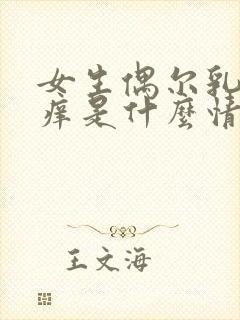 女生偶尔乳
痒是什麼情
王文海